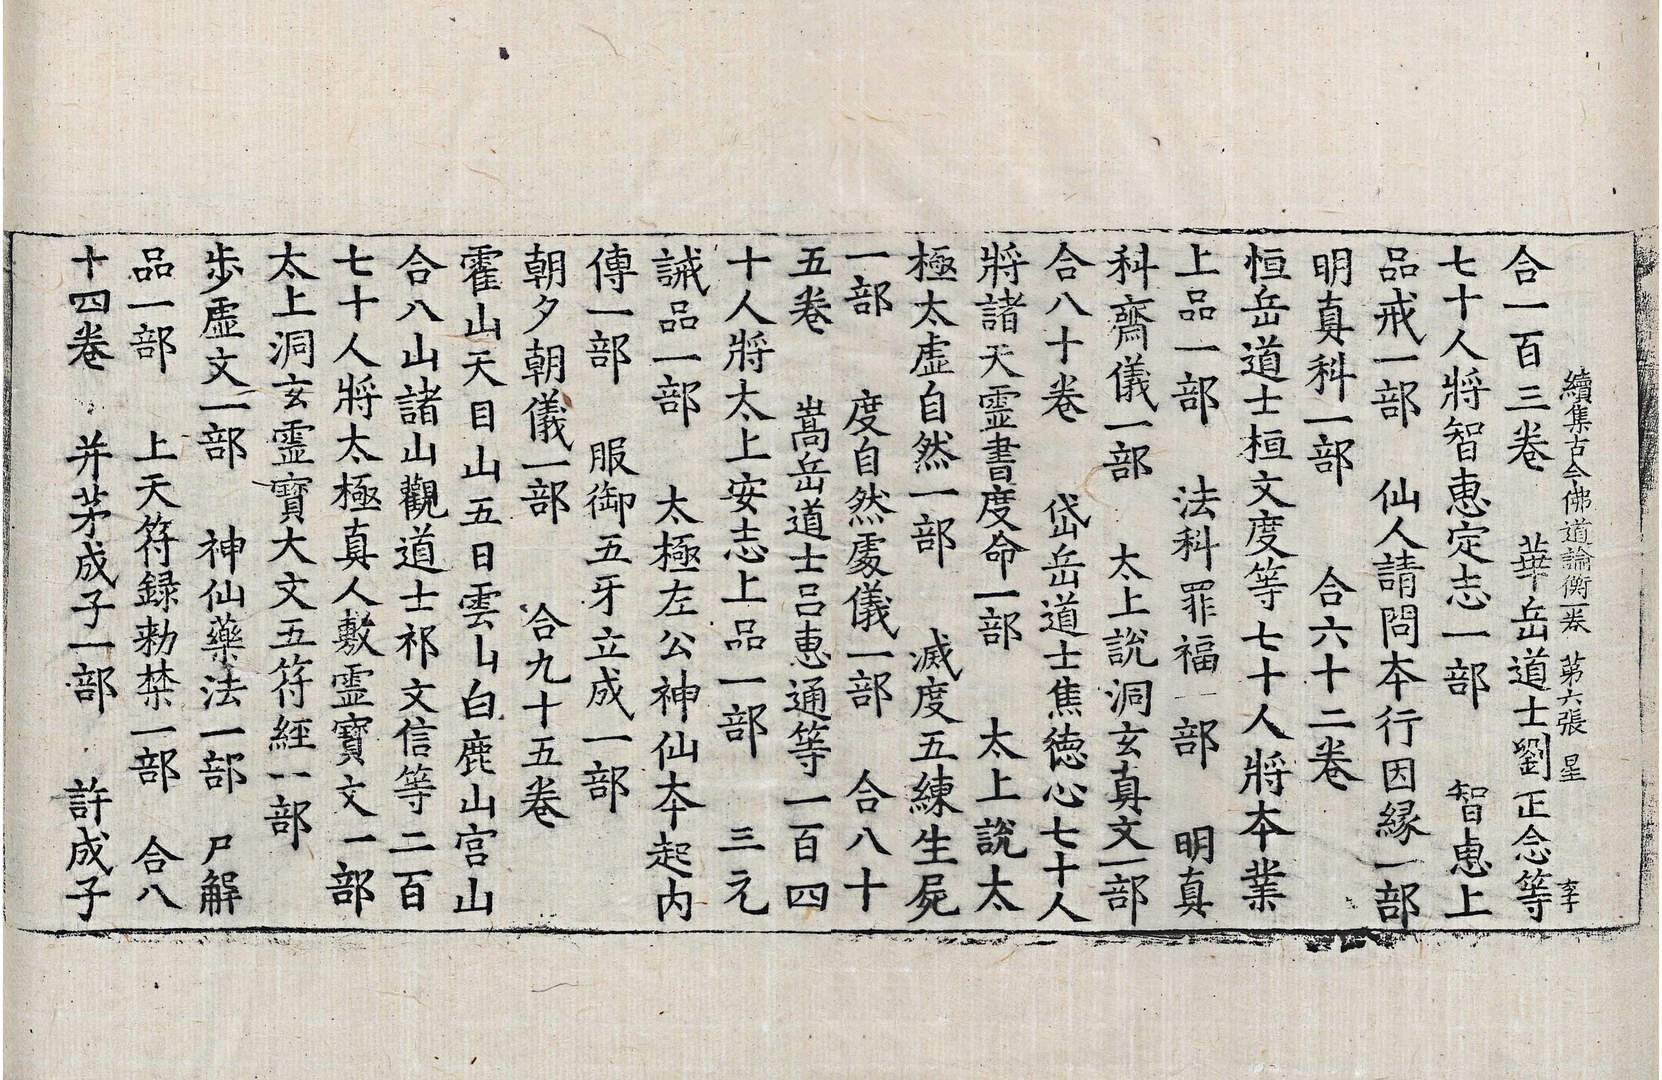 續集古今佛道論衡一卷 第六張 星 李
合一百三卷 華岳道士劉正念等
七十人將智惠定志一部 智惠上
品戒一部 仙人請問本行因緣一部
明真科一部 合六十二卷
恒岳道士桓文度等七十人將本業
上品一部 法科罪福一部 明真
科齋儀一部 太上說洞玄真文一部
合八十卷 岱岳道士焦德心七十人
將諸天靈書度命一部 太上說太
極太虛自然一部 滅度五練生屍
一部 度自然處儀一部 合八十
五卷 嵩岳道士呂惠通等一百四
十人將太上安志上品一部 三元
誡品一部 太極左公神仙本起內
傳一部 服御五牙立成一部
朝夕朝儀一部 合九十五卷
霍山天目山五日雲山白鹿山宮山
合八山諸山觀道士祁文信等二百
七十人將太極真人敷靈寶文一部
太上洞玄靈寶大文五符經一部
步虛文一部 神仙藥法一部 尸解
品一部 上天符録勑禁一部 合八
十四卷 并茅成子一部 許成子